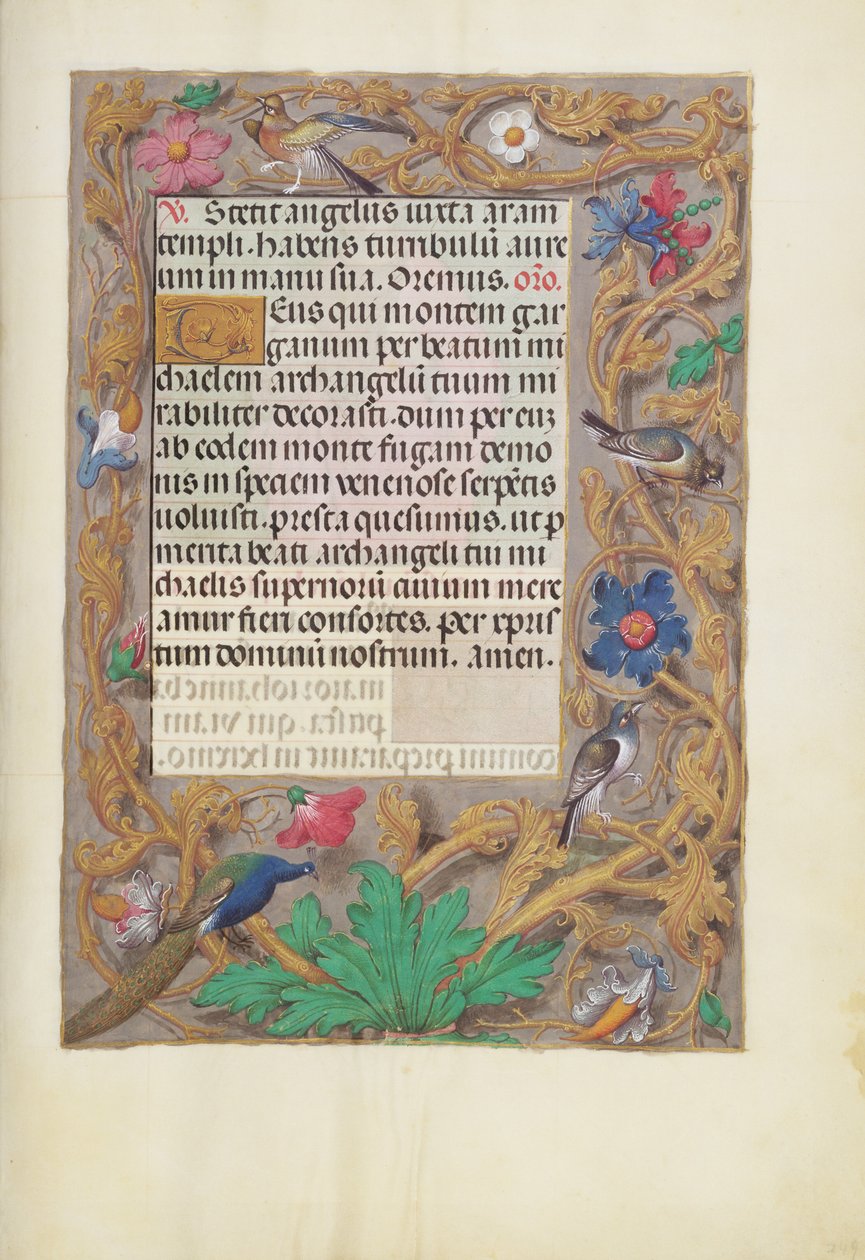 V. Stetit angelus iuxta aram
templi. habens turribulū aure
um in manu sua. Oremus. orō.
Deus qui montem gar
ganum per beatum mi
chaelem archangelū tuum mi
rabiliter decorasti. dum per euȝ
ab eodem monte fugam demo
nis in speciem venenose serpētis
uoluisti. presta quesumus. ut ꝑ
merita beati archangeli tui mi
chaelis supernorū ciuium mere
amur fieri consortes. per xpris
tum dominū nostrum. amen.